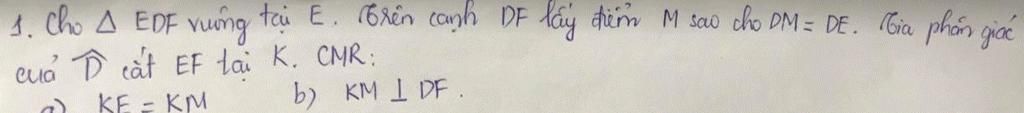 1. Cho Δ EDF vuông tại E. Trên cạnh DF lấy điểm M sao cho DM = DE. Tia phân giác
của D̂ cắt EF tại K. CMR:
a) KE = KM b) KM ⊥ DF.